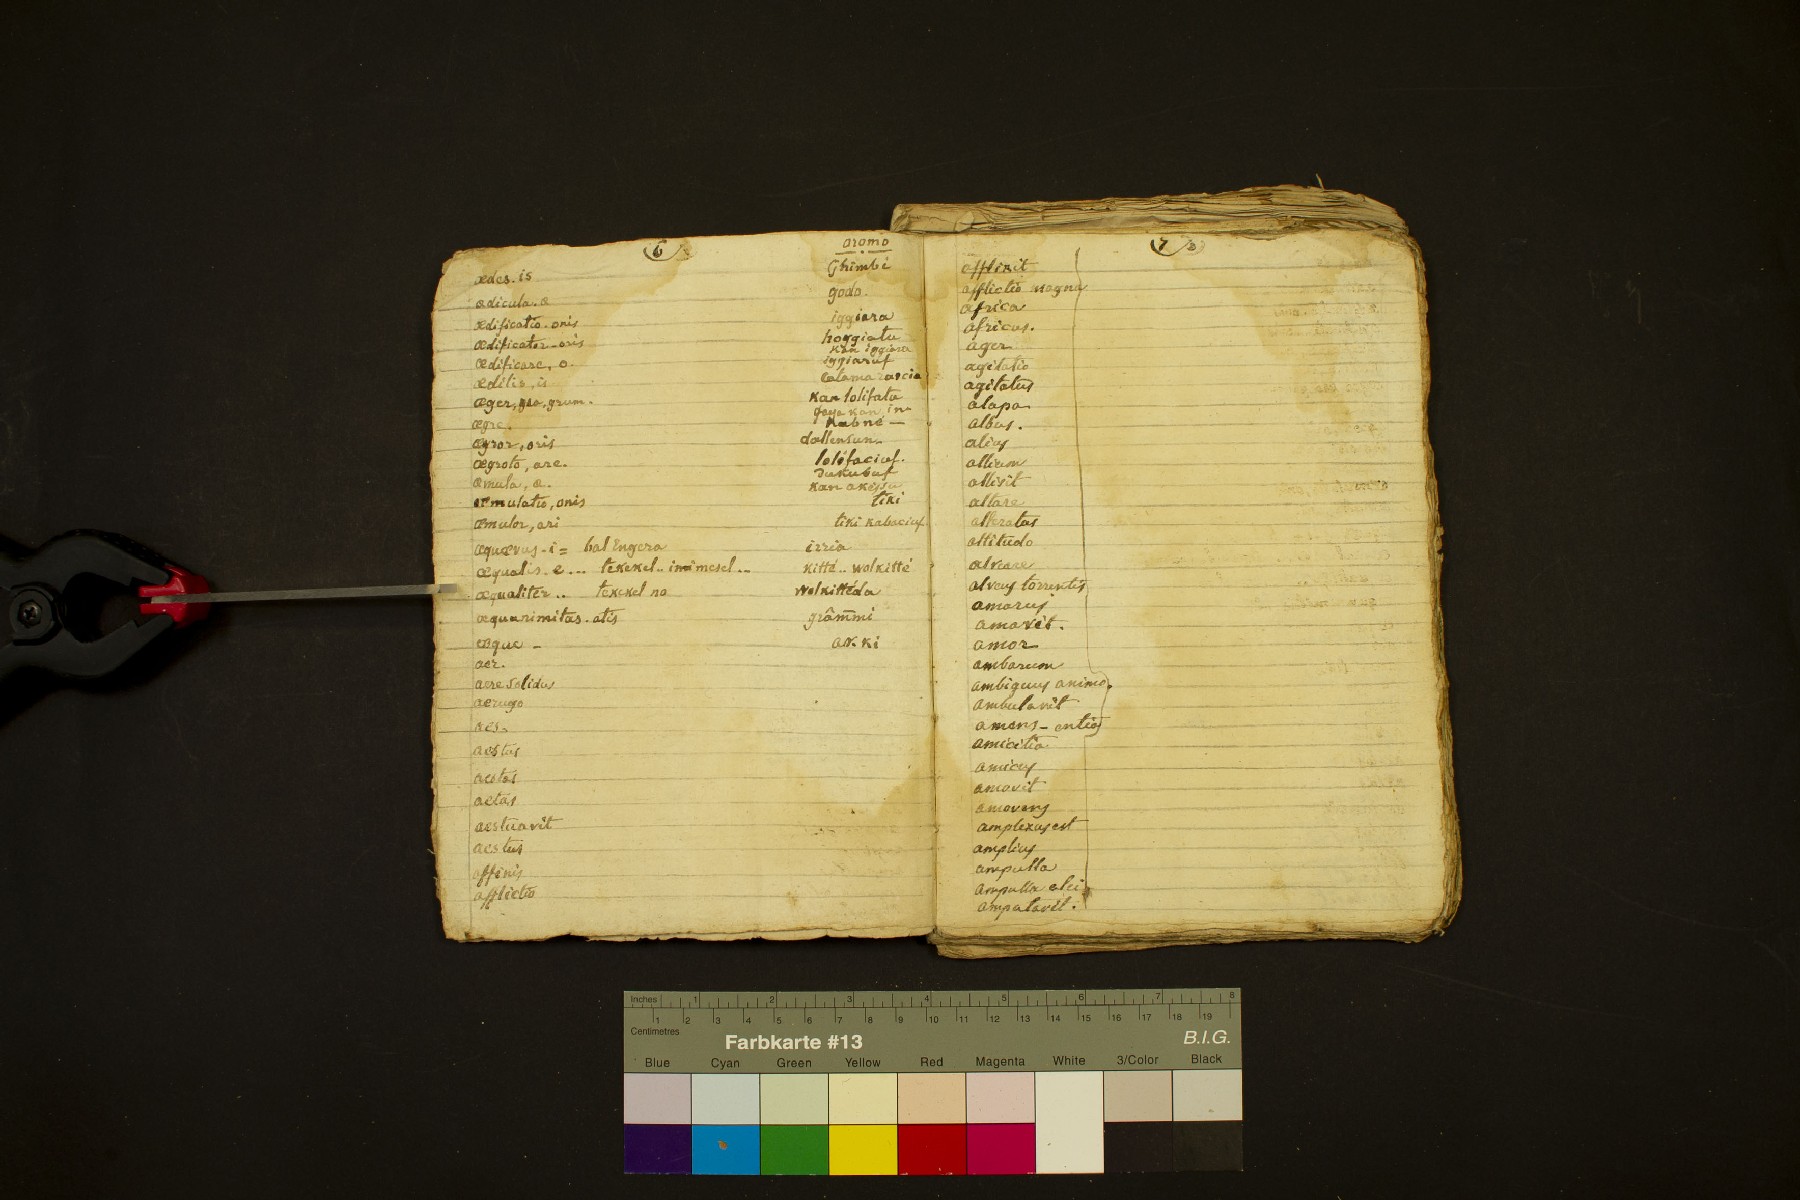 6
oromo
ædes. is Ghimbi
ædicula. æ godo.
ædificatio. onis iggiara
ædificator - oris hoggiatu
kan iggiara
ædificare, o. iggiaruf
ædilis, is
æger, gra, grum. kan lolifatu
kan
ægre. kabne —
ægror, oris dallensun
ægroto, are. lolifaciuf.
dukubuf
æmula, æ. kan akessu
æmulatio, onis tiki
æmulor, ari tiki kabaciuf
æquævus - i = bal Engera irria
æqualis. e... tekekel.. inimesel... kitté.. wolkitté
æqualiter.. tekekel no wolkitteda
æquanimitas. atis grâmmi
æque - akki
aer.
aere solidus
aerugo
aes.
aestas
aestas
aetas
aestuavit
aestus
affinis
afflictio
7
afflixit
afflictio magna
africa
africus.
ager
agitatio
agitatus
alapa
albus.
alius
allium
allisit
altare
alteratus
altitudo
alveare
alveus torrentis
amarus
amavit.
amor
ambarum
ambiguus animo.
ambulavit
amens - entia
amicitia
amicus
amovit
amovens
amplexus est
amplius
ampulla
ampulla olei
amputavit.
Inches 1 2 3 4 5 6 7 8
1 2 3 4 5 6 7 8 9 10 11 12 13 14 15 16 17 18 19
Centimetres
Farbkarte #13 B.I.G.
Blue Cyan Green Yellow Red Magenta White 3/Color Black